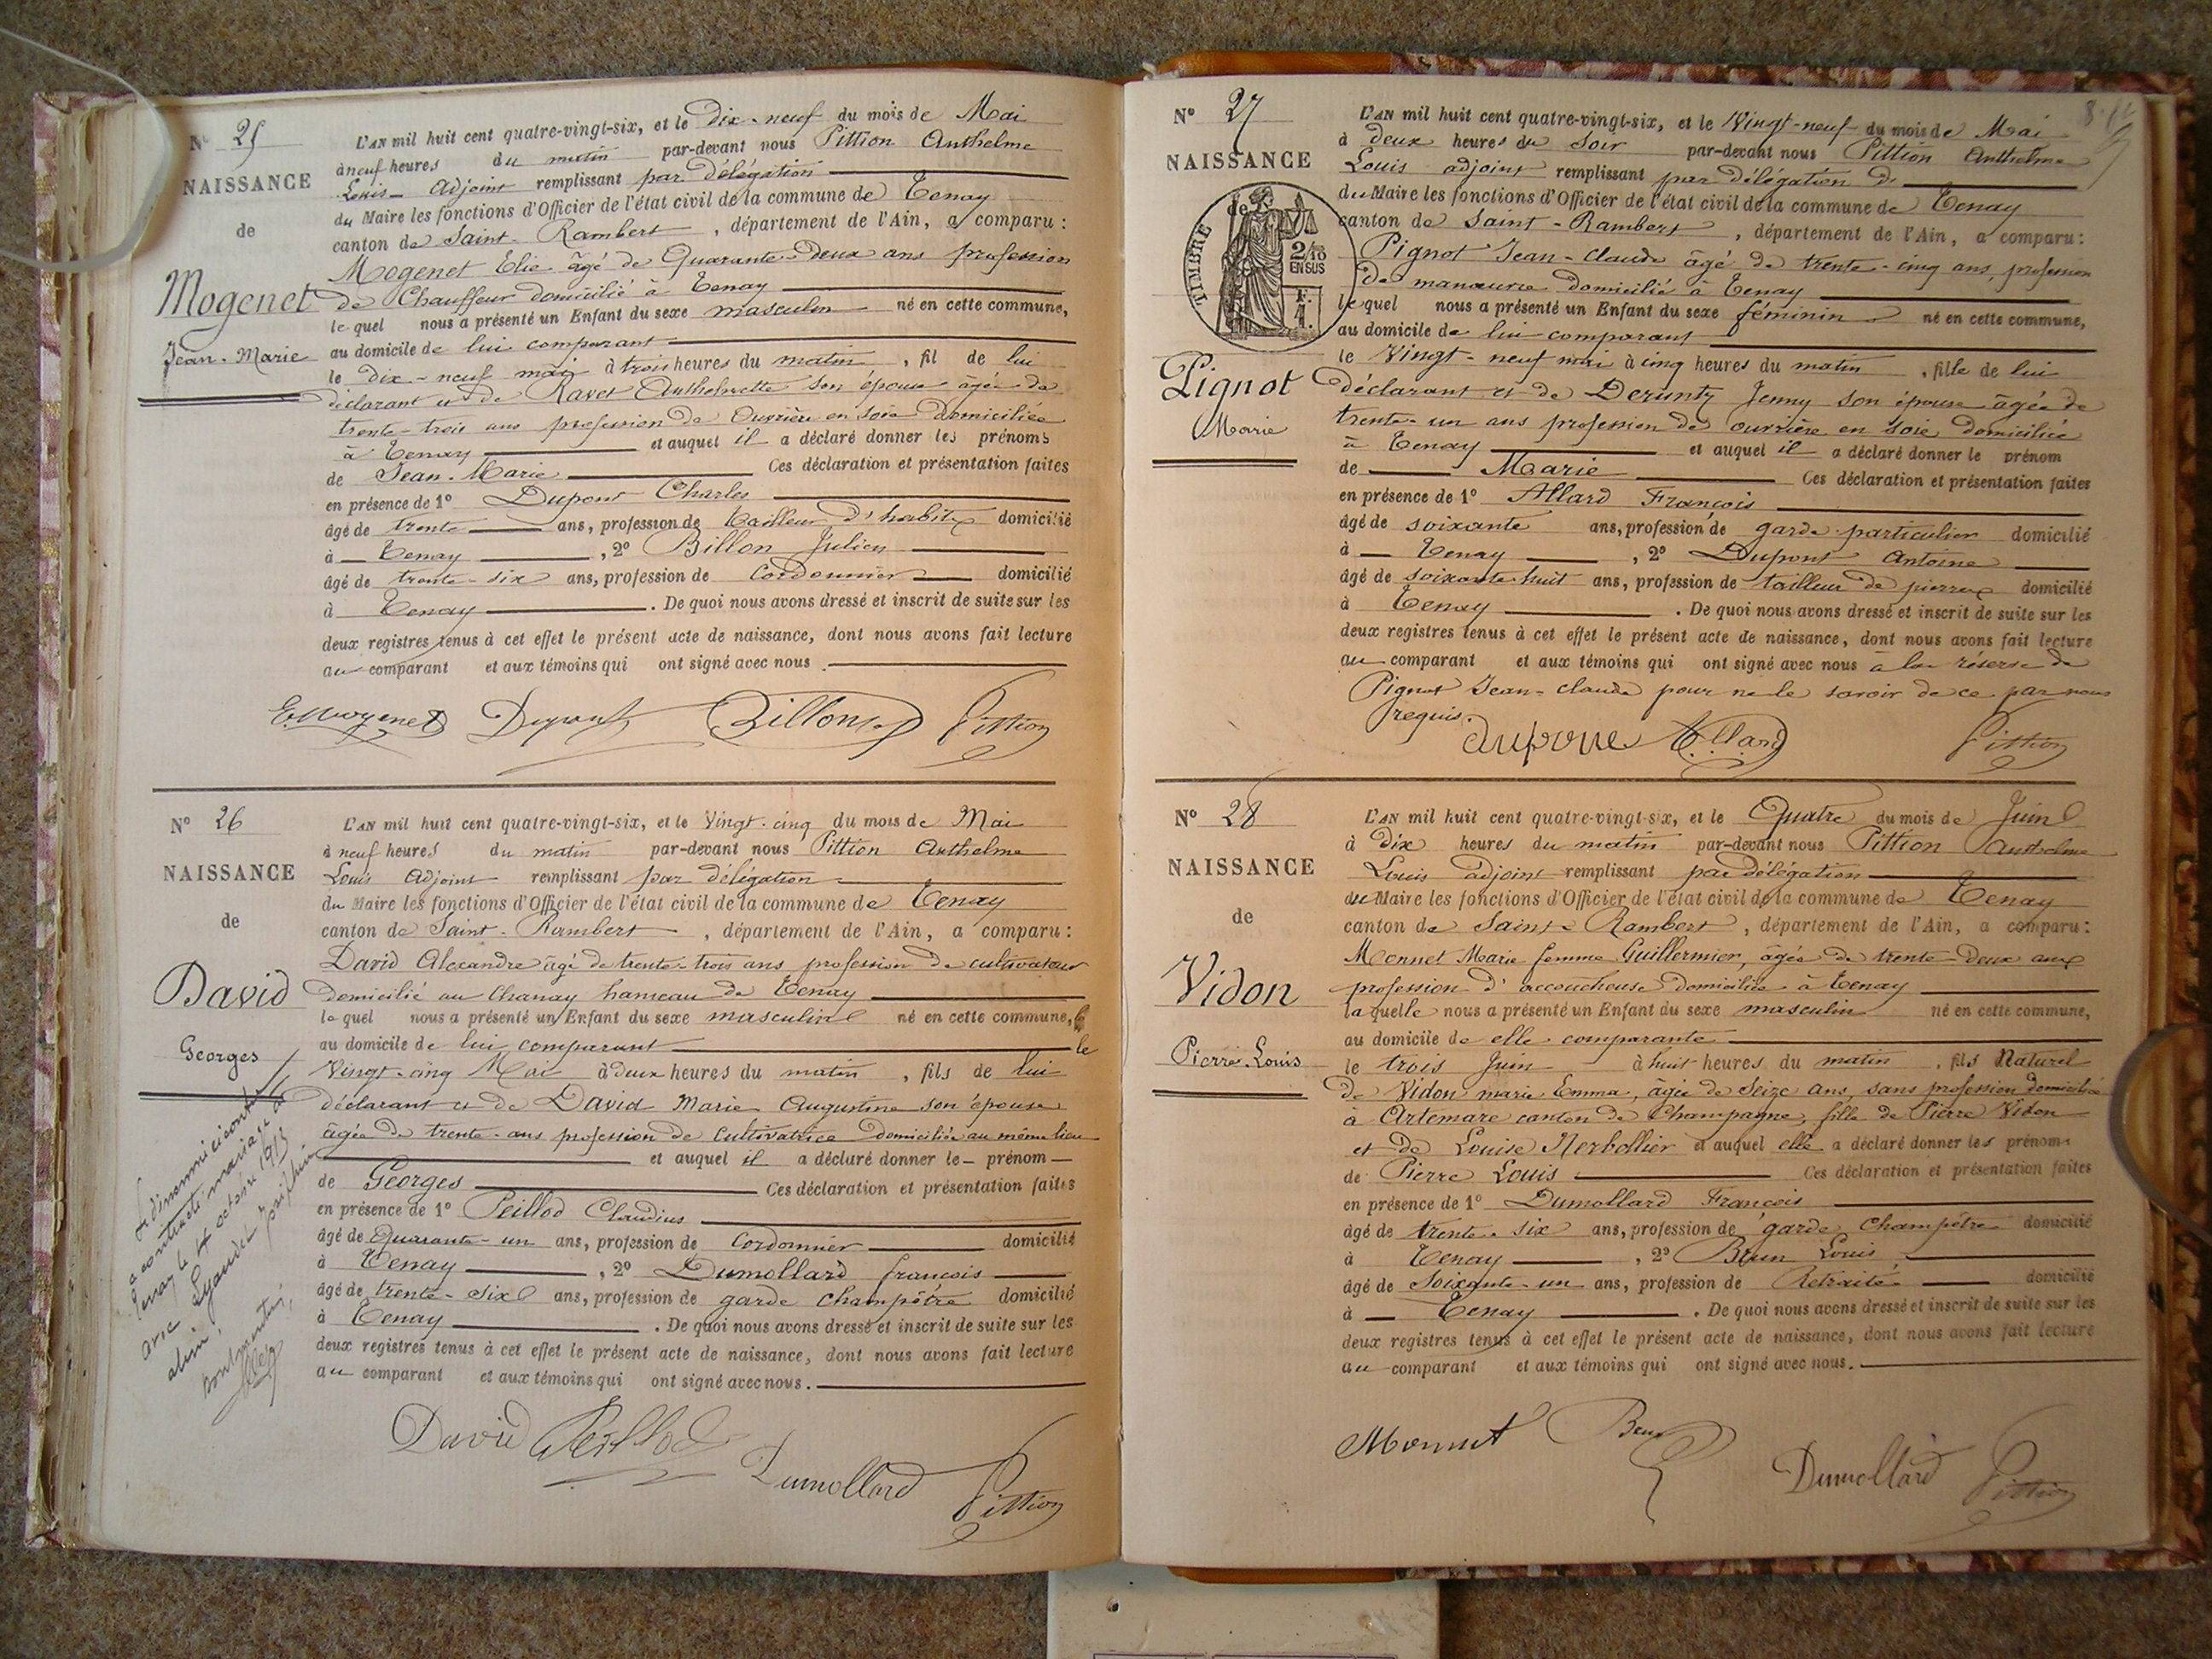 N° 25
NAISSANCE
de
Mogenet
Jean-Marie
L'AN mil huit cent quatre-vingt-six, et le dix-neuf du mois de Mai
à neuf heures du matin par-devant nous Pittion Anthelme
Louis Adjoint remplissant par délégation
du Maire les fonctions d'Officier de l'état civil de la commune de Tenay
canton de Saint-Rambert, département de l'Ain, a comparu :
Mogenet Elie âgé de Quarante-deux ans profession
de Chauffeur domicilié à Tenay
lequel nous a présenté un Enfant du sexe masculin né en cette commune,
au domicile de lui comparant
le dix-neuf mai à trois heures du matin, fil de lui
déclarant et de Ravet Anthelmette son épouse âgée de
trente-trois ans profession de Ouvrière en soie domiciliée
à Tenay et auquel il a déclaré donner les prénoms
de Jean-Marie Ces déclaration et présentation faites
en présence de 1° Dupont Charles
âgé de trente ans, profession de tailleur d'habits domicilié
à Tenay, 2° Billon Julien
âgé de trente-six ans, profession de Cordonnier domicilié
à Tenay. De quoi nous avons dressé et inscrit de suite sur les
deux registres tenus à cet effet le présent acte de naissance, dont nous avons fait lecture
au comparant et aux témoins qui ont signé avec nous.
E. Mogenet Dupont Billon J Pittion
N° 26
NAISSANCE
de
David
Georges
L'AN mil huit cent quatre-vingt-six, et le Vingt-cinq du mois de Mai
à neuf heures du matin par-devant nous Pittion Anthelme
Louis Adjoint remplissant par délégation
du Maire les fonctions d'Officier de l'état civil de la commune de Tenay
canton de Saint-Rambert, département de l'Ain, a comparu :
David Alexandre âgé de trente-trois ans profession de cultivateur
domicilié au Chanay hameau de Tenay
lequel nous a présenté un Enfant du sexe masculin né en cette commune,
au domicile de lui comparant le
Vingt-cinq Mai à deux heures du matin, fils de lui
déclarant et de David Marie Augustine son épouse
âgée de trente-ans profession de Cultivatrice domiciliée au même lieu
et auquel il a déclaré donner le prénom
de Georges Ces déclaration et présentation faites
en présence de 1° Peillod Claudius
âgé de Quarante-un ans, profession de Cordonnier domicilié
à Tenay, 2° Dumollard françois
âgé de trente-six ans, profession de garde champêtre domicilié
à Tenay. De quoi nous avons dressé et inscrit de suite sur les
deux registres tenus à cet effet le présent acte de naissance, dont nous avons fait lecture
au comparant et aux témoins qui ont signé avec nous.
Le dénommé ci contre
a contracté mariage à
Tenay le 4 octobre 1913
avec
David Peillod Dumollard Pittion
N° 27
NAISSANCE
de
TIMBRE
2/10
EN SUS
1 F.
Pignot
Marie
L'AN mil huit cent quatre-vingt-six, et le Vingt-neuf du mois de Mai
à deux heures du Soir par-devant nous Pittion Anthelme
Louis adjoint remplissant par délégation d
du Maire les fonctions d'Officier de l'état civil de la commune de Tenay
canton de Saint-Rambert, département de l'Ain, a comparu :
Pignot Jean-Claude âgé de trente-cinq ans, profession
de manœuvre domicilié à Tenay
lequel nous a présenté un Enfant du sexe féminin né en cette commune,
au domicile de lui comparant
le Vingt-neuf mai à cinq heures du matin, fille de lui
déclarant et de Deruntz Jenny son épouse âgée de
trente-un ans profession de ouvrière en soie domiciliée
à Tenay et auquel il a déclaré donner le prénom
de Marie Ces déclaration et présentation faites
en présence de 1° Allard François
âgé de soixante ans, profession de garde-particulier domicilié
à Tenay, 2° Dupont Antoine
âgé de soixante-huit ans, profession de tailleur de pierres domicilié
à Tenay. De quoi nous avons dressé et inscrit de suite sur les
deux registres tenus à cet effet le présent acte de naissance, dont nous avons fait lecture
au comparant et aux témoins qui ont signé avec nous à la réserve de
Pignot Jean-claude pour ne le savoir de ce par nous
requis.
dupont Allard Pittion
N° 28
NAISSANCE
de
Vidon
Pierre-Louis
L'AN mil huit cent quatre-vingt-six, et le Quatre du mois de Juin
à dix heures du matin par-devant nous Pittion Anthelme
Louis adjoint remplissant par délégation
du Maire les fonctions d'Officier de l'état civil de la commune de Tenay
canton de Saint-Rambert, département de l'Ain, a comparu :
Monnet Marie femme Guillermier, âgée de trente-deux ans
profession d'accoucheuse domiciliée à Tenay
laquelle nous a présenté un Enfant du sexe masculin né en cette commune,
au domicile de elle comparante
le trois Juin à huit heures du matin, fils Naturel
de Vidon marie Emma, âgée de Seize ans, sans profession domiciliée
à Artemare canton de Champagne, fille de Pierre Vidon
et de Louise Nerbollier et auquel elle a déclaré donner les prénoms
de Pierre Louis Ces déclaration et présentation faites
en présence de 1° Dumollard François
âgé de trente-six ans, profession de garde champêtre domicilié
à Tenay, 2° Brun Louis
âgé de Soixante-un ans, profession de Retraité domicilié
à Tenay. De quoi nous avons dressé et inscrit de suite sur les
deux registres tenus à cet effet le présent acte de naissance, dont nous avons fait lecture
au comparant et aux témoins qui ont signé avec nous.
Monnet Brun Dumollard Pittion